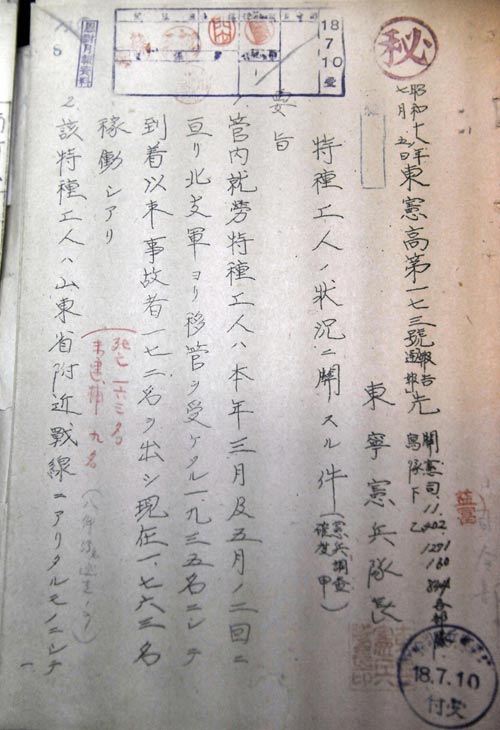 秘
18
7
10
受
昭和十八年
七月五日
東憲高第一七三號
報告
通報
先
關憲司、11、402、1291
160
各部隊
東寧憲兵隊長
特種工人ノ状況ニ關スル件
(憲兵調査
確度甲)
要旨
管内就勞特種工人ハ本年三月及五月ノ二回ニ
亘リ北支軍ヨリ移管ヲ受ケタル一、九三五名ニシテ
到着以来事故者一七二名ヲ出シ現在一、七六三名
稼働シアリ
死亡一六三名
未逮捕 九名
2、該特種工人ハ山東省附近戰線ニアリタルモノニシテ
18.7.10
受付